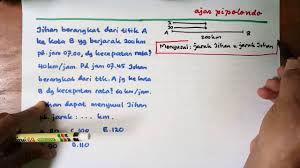 ajar pipolondo
Jihan berangkat dari titik A
ke kota B yg berjarak 200km
pd. jam 07.00, dg kecepatan rata²
40km/jam. Pd jam 07.45 Johan
berangkat dari ttk. A jg ke kota
B dg kecepatan rata² 60km/jam.
Johan dapat menyusul Jihan
pd. jarak : ... km.
C. 100 E. 120
90 D. 110
A B
200km
Menyusul: jarak Jihan = jarak Johan